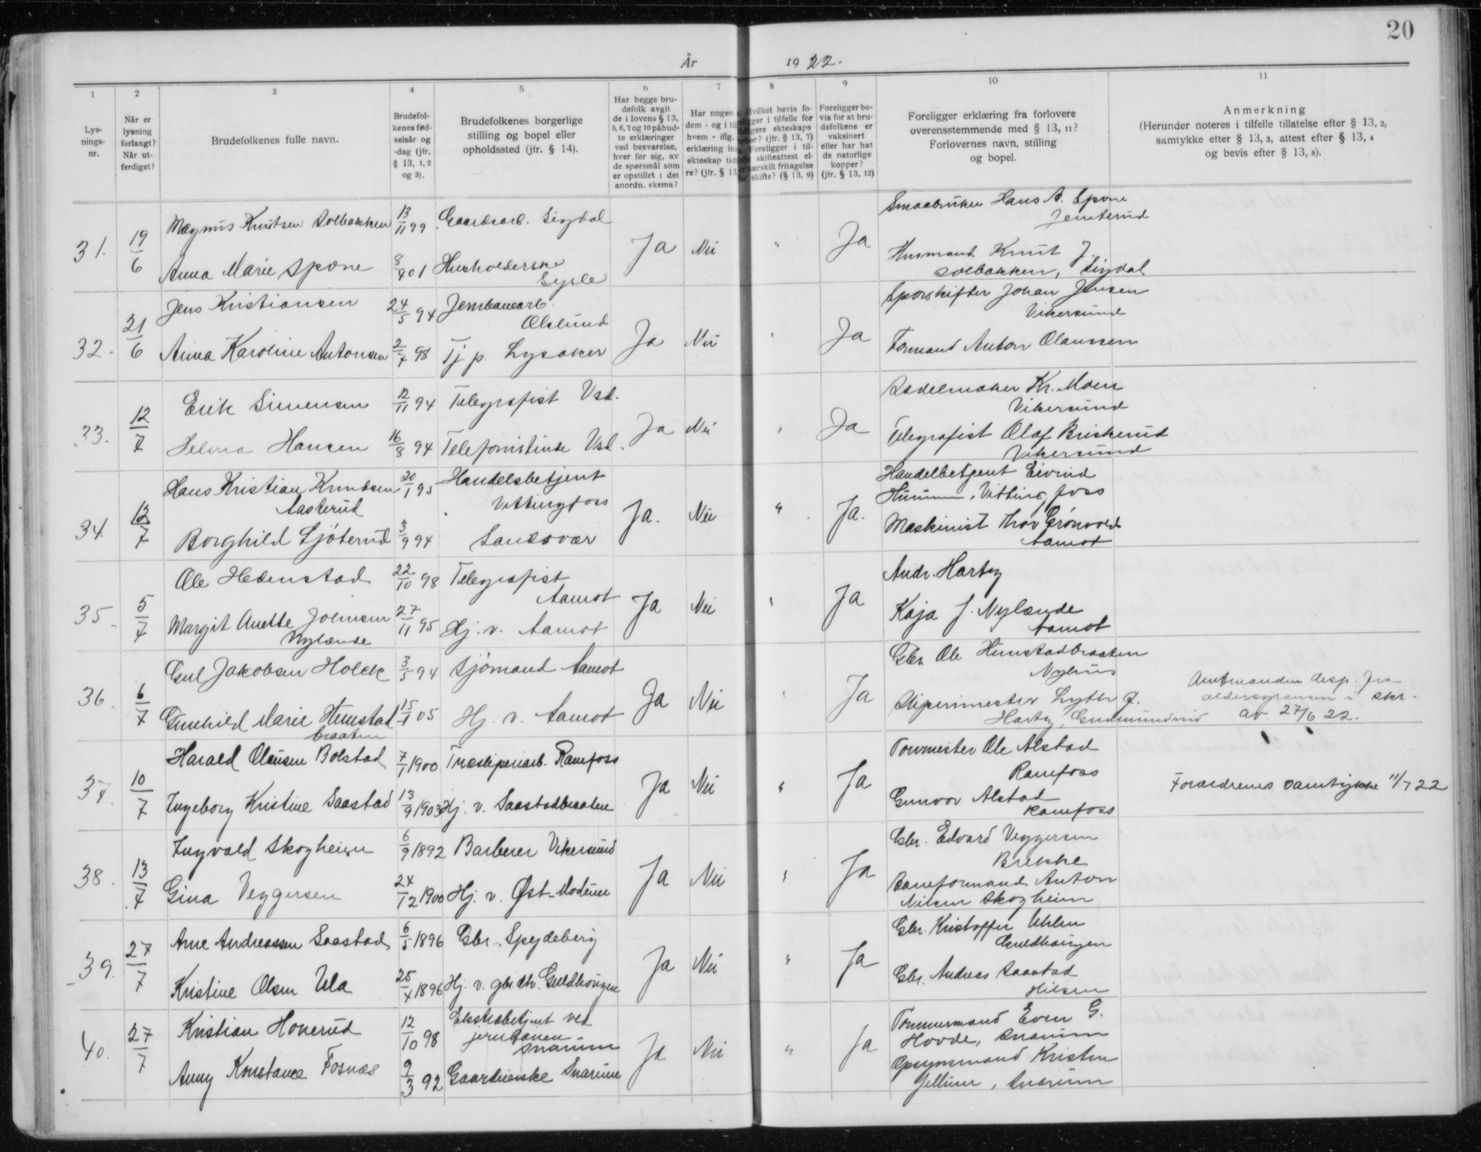 20
År 1922.
1
2
3
4
5
6
7
8
9
10
11
Lys-
nings-
nr.
Når er
lysning
forlangt?
Når ut-
ferdiget?
Brudefolkenes fulle navn.
Brudefol-
kenes fød-
selsår og
-dag (jfr.
§ 13, 1, 2
og 3).
Brudefolkenes borgerlige
stilling og bopel eller
opholdssted (jfr. § 14).
Har begge bru-
defolk avgit
de i lovens § 13,
5, 6, 7 og 10 påbud-
te erklæringer
ved besvarelse,
hver for sig, av
de spørsmål som
er opstillet i det
anordn. skema?
Har nogen a
dem - og i til
hvem - iflg.
erklæring in
ekteskap tid
re? (jfr. § 13
Hvilket bevis fo-
ger i tilfelle for
gere ekteskaps
er? (jfr. § 13, 7)
Foreligger i til-
skifteattest el-
ærskilt fritagelse
skifte? (§ 13, 9)
Foreligger be-
vis for at bru-
defolkene er
vaksinert
eller har hat
de naturlige
kopper?
(jfr. § 13, 12)
Foreligger erklæring fra forlovere
overensstemmende med § 13, 11?
Forlovernes navn, stilling
og bopel.
Anmerkning
(Herunder noteres i tilfelle tillatelse efter § 13, 2,
samtykke efter § 13, 3, attest efter § 13, 4
og bevis efter § 13, 8).
31. 19/6 Magnus Knutsen Solbakken 13/11 99 Gaardsarb. Sigdal Ja Nei " Ja Smaabruker Hans A. Spone
Jensterud
Anna Marie Spone 8/9 01 Husholderske
Eggedal
Husmand Knut J.
Solbakken, Sigdal
32. 21/6 Jens Kristiansen 24/5 94 Jernbanearb.
Ja Nei " Ja Sporskifter Johan Jensen
Vikersund
Anna Karoline Antonsen 2/7 98 Tj. p. Lysaker
Formand Anton Olaussen
33. 12/7 Erik Simensen 12/11 94 Telegrafist Vsd. Ja Nei " Ja Sadelmaker Kr. Moen
Vikersund
Helma Hansen 16/8 94 Telefonistinde Vsd.
Telegrafist Olaf Briskerud
Vikersund
34 13/7 Hans Kristian Knudsen
Aasterud 30/1 95 Handelsbetjent
Vittingfoss Ja. Nei " Ja. Handelbetjent Eivind
Vittingfoss
Borghild Sjøterud 3/9 94 Sandsvær
Maskinist Thov Grönvold
Aamot
35. 5/7 Ole Hedenstad 22/10 98 Telegrafist
Aamot Ja Nei " Ja Andr. Hartz
Margit Anette Johnsen
Nylænde 27/11 95 Hj. v. Aamot
Kaja J. Nylænde
Aamot
36. 6/7 Gul Jakobsen Holck 3/5 94 Sjømand Aamot Ja Nei " Ja Gbr. Ole Hemstadbraaten
Nyhus
Gunhild Marie Hemstad-
braaten 15/1 05 Hj. v. Aamot
Sliperimester
Amtmanden disp. fra
aldersgrensen i skr.
av 27/6 22.
37. 10/7 Harald Olausen Bolstad 7/1 1900 Træsliperiarb. Ramfoss Ja Nei " Ja Tommester Ole Alstad
Ramfoss
Ingeborg Kristine Saastad 13/9 1903 Hj. v. Saastadbraaten
Gunvor Alstad
Ramfoss
Forældrenes samtykke 11/7 22
38. 13/7 Ingvald Skogheim 6/9 1892 Barberer Vikersund Ja Nei " Ja Gbr. Edvard Veggersen
Brekke
Gina Veggersen 24/12 1900 Hj. v. Øst-Modum
Baneformand Anton
Nilsen Skogheim
39. 27/7 Arne Andreassen Saastad 6/5 1896 Gbr. Spydeberg Ja Nei " Ja Gbr. Kristoffer Uhlen
Guldhaugen
Kristine Olsen Ula 25/4 1896 Hj. v. gbr.dtr. Guldhaugen
Gbr. Andreas Saastad
Hilsen
40. 27/7 Kristian Hoverud 12/10 98 Ekstrabetjent ved
jernbanen
Snarum Ja Nei " Ja Tømmermand Even G.
Hovde, Snarum
Anny Konstance Fosnæs 9/3 92 Gaardienske Snarum
Opsynsmand Kristen
Gjellum, Snarum